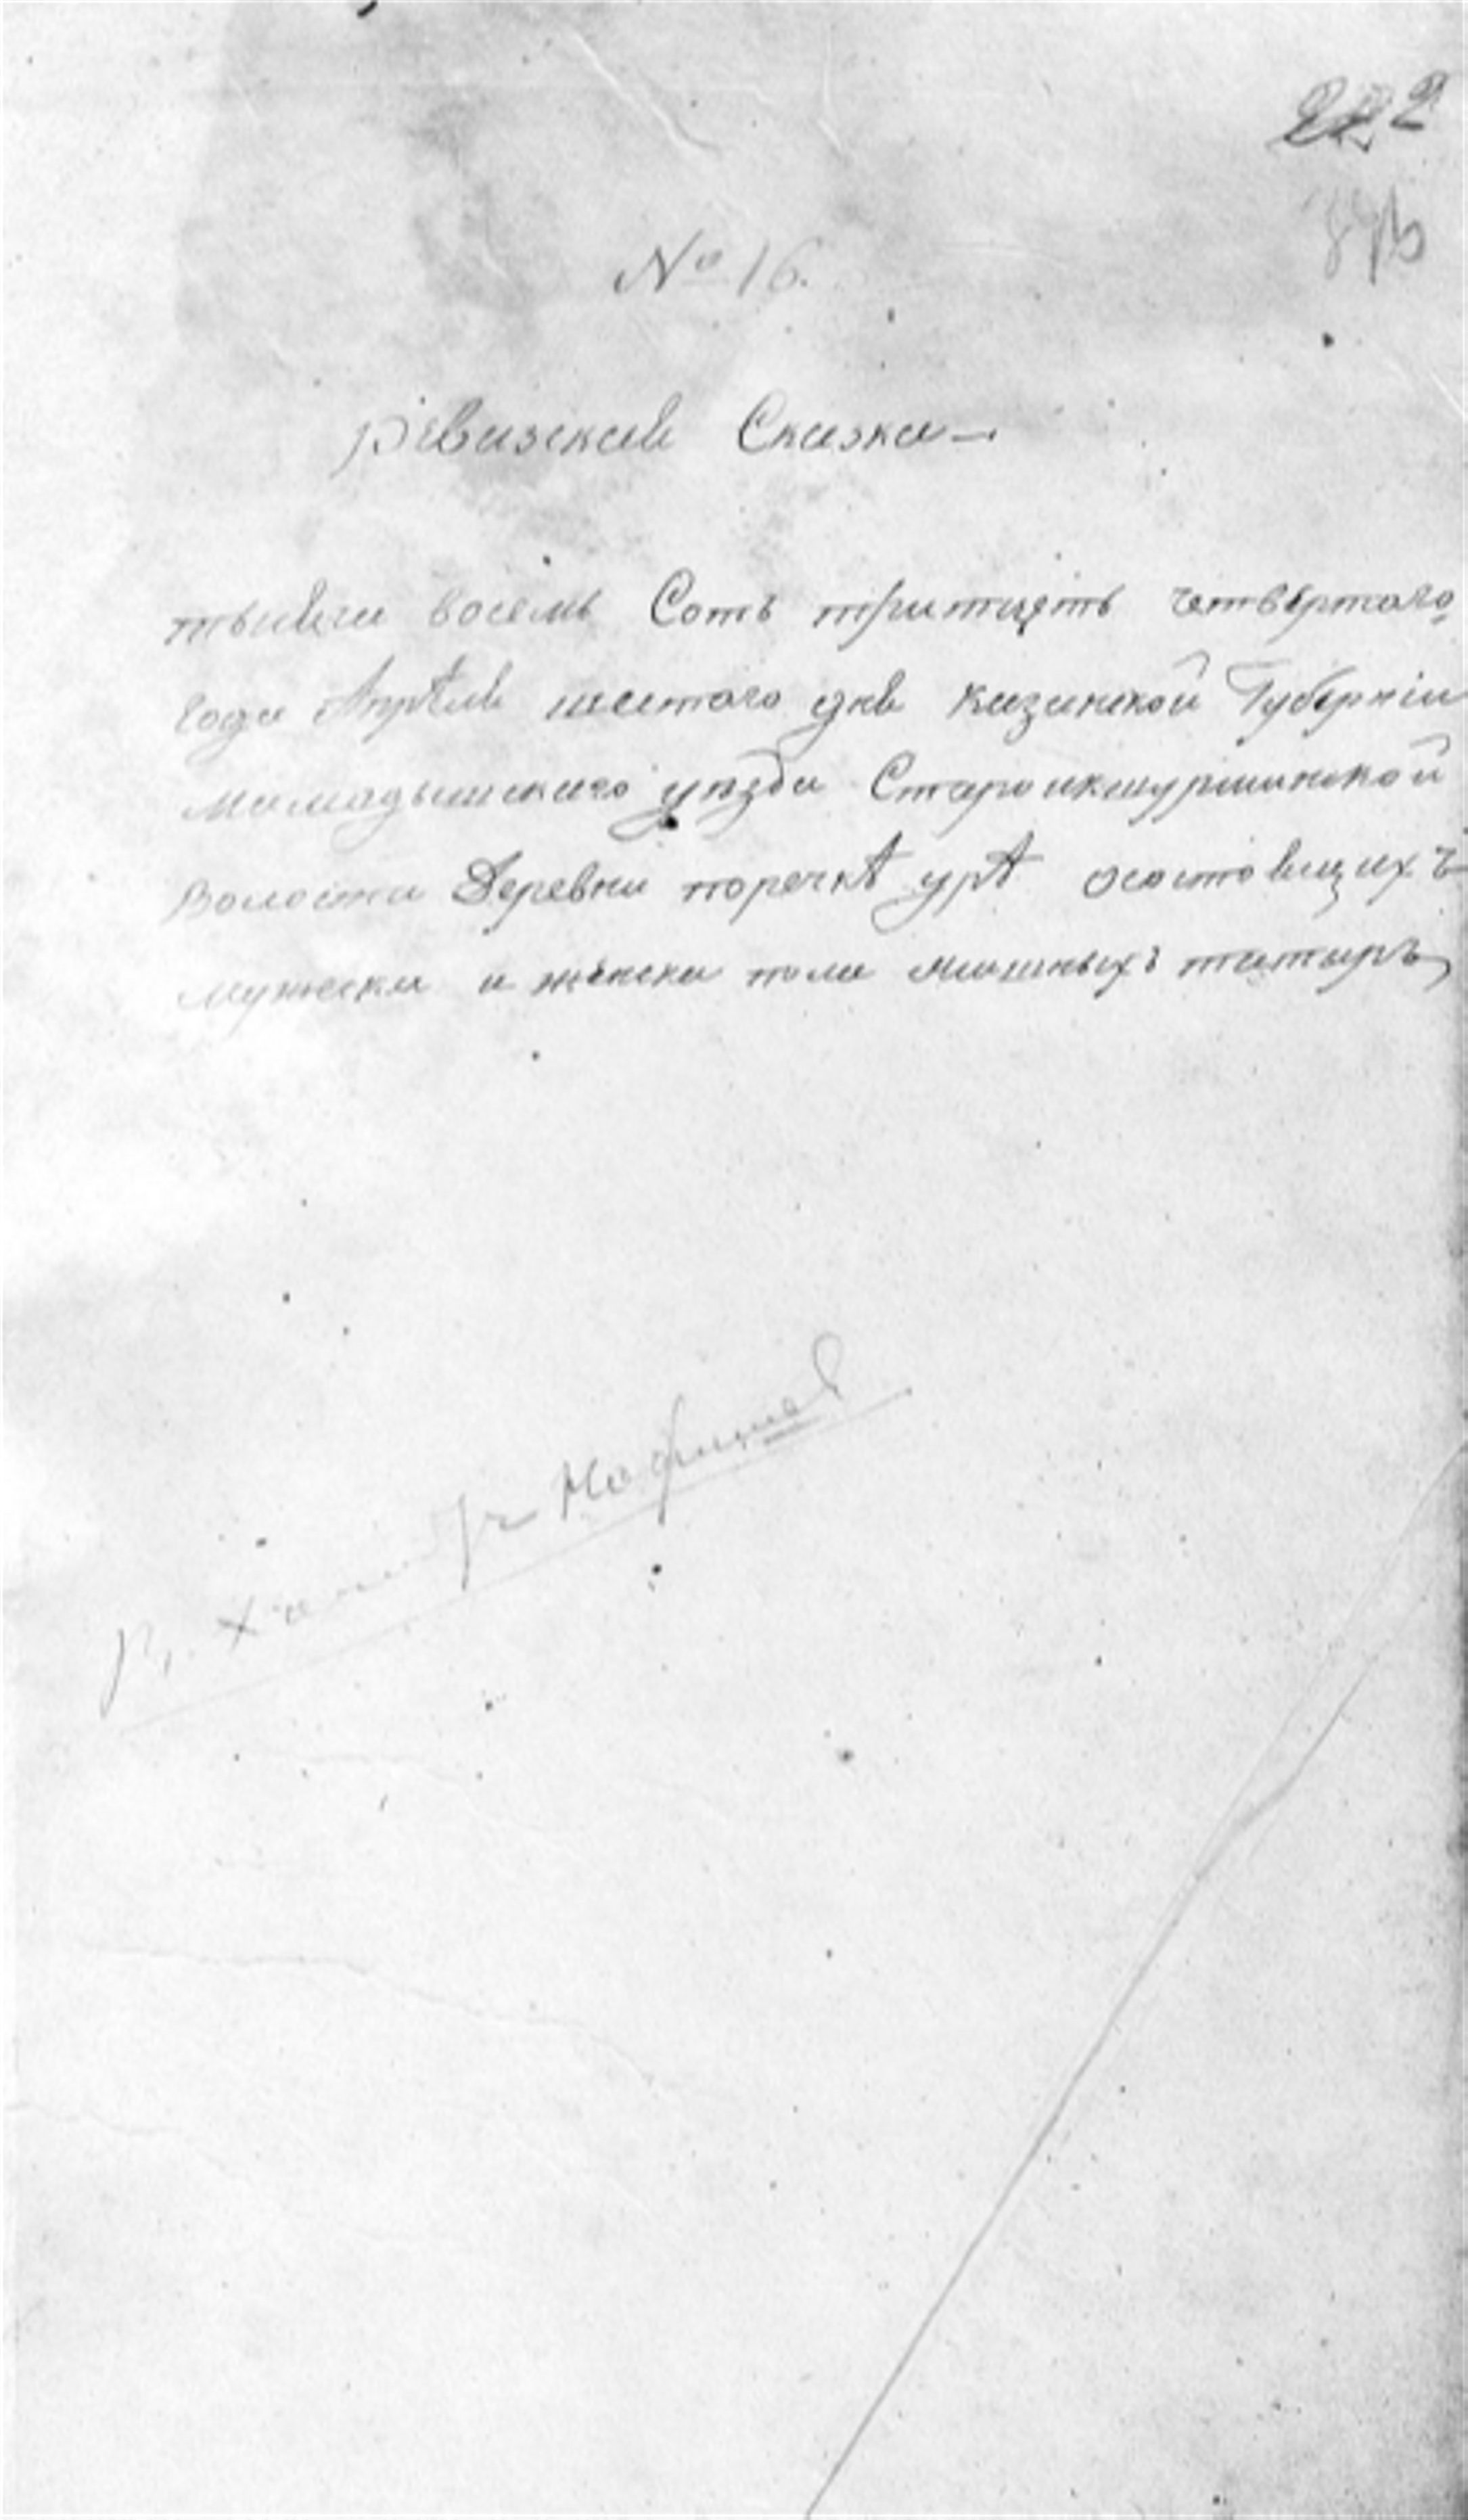 222
№ 16.
Ревизская Сказка —
тысяча восемь Сотъ тритцеть четвертаго
года Апрѣля шестаго дня казанской Губерніи
мамадышскаго уѣзда Староикшурминской
Волости Деревни поречкѣ урѣ осостоящихъ
мужска и женска пола ясашныхъ татаръ